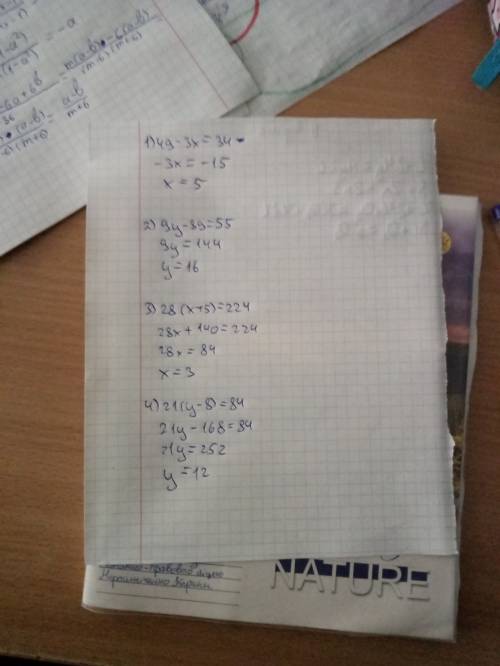 = -a
1) 49 - 3x = 34
-3x = -15
x = 5
2) 9y - 89 = 55
9y = 144
y = 16
3) 28(x+5) = 224
28x + 140 = 224
28x = 84
x = 3
4) 21(y-8) = 84
21y - 168 = 84
21y = 252
y = 12
NATURE